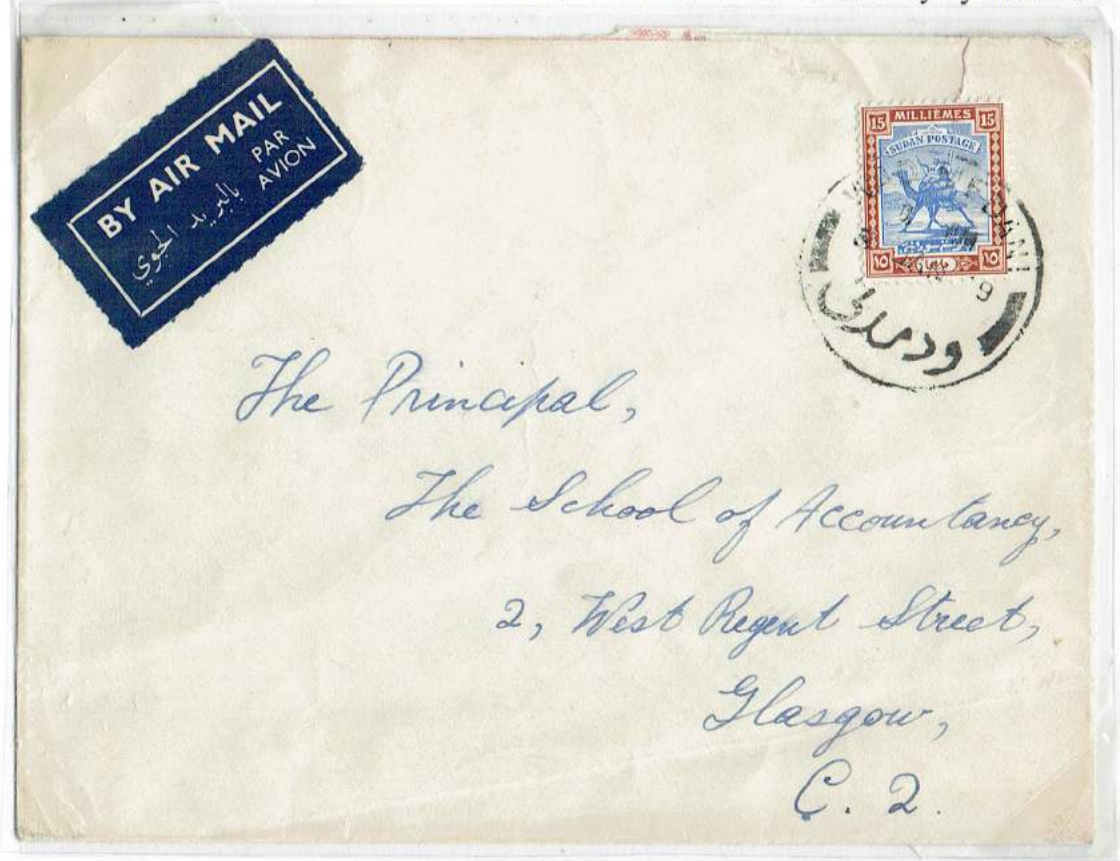 BY AIR MAIL
PAR
AVION
بالبريد الجوي
15 MILLIÈMES 15
SUDAN POSTAGE
١٥ ١٥
WAD MEDANI
ود مدنى
The Principal,
The School of Accountancy,
2, West Regent Street,
Glasgow,
C. 2.